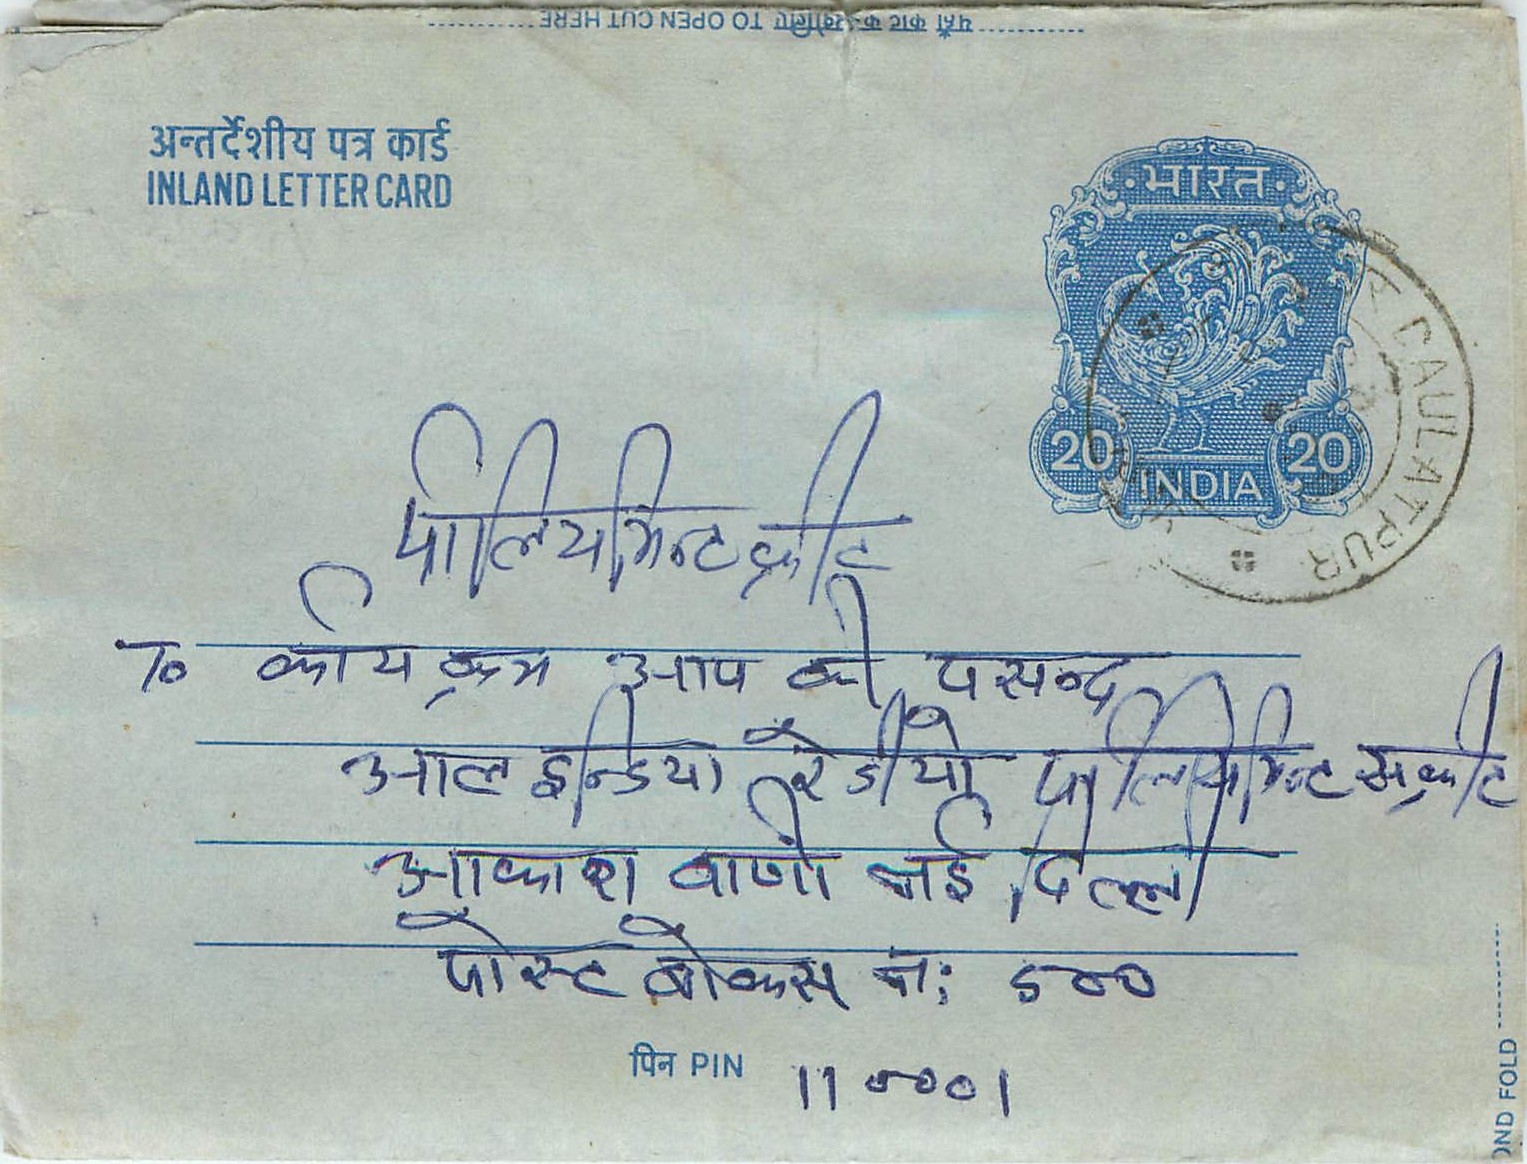 यहाँ काट कर खोलिए TO OPEN CUT HERE
अन्तर्देशीय पत्र कार्ड
INLAND LETTER CARD
भारत
20 20
INDIA
DAULATPUR
पार्लियमिन्ट स्ट्रीट
To कार्यक्रम आप की पसन्द
आल इन्डिया रेडीयो पार्लियमिन्ट
आकाश वाणी नई दिल्ली
पोस्ट बोक्स न: 500
पिन PIN 110001
OND FOLD